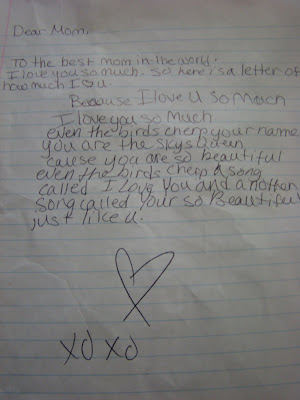 Dear Mom,
To the best mom in the world.
I love you so much. So here is a letter of
how much I ♡ u
Because I love U so much
I love you so much
even the birds cherp your name
you are the skys Queen
cause you are so beautiful
even the birds cherp a song
called I Love You and another
song called your so Beautiful
just like u.
xo xo